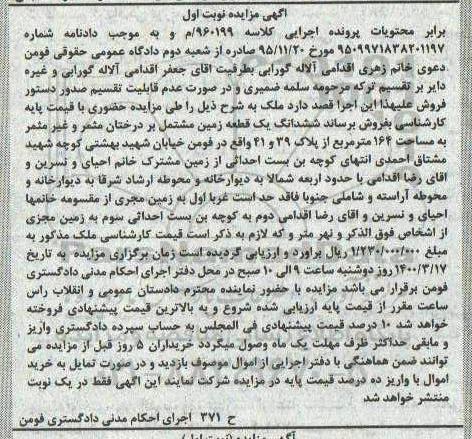 آگهی مزایده نوبت اول
برابر محتویات پرونده اجرایی کلاسه ۹۶۰۱۹۹/م و به موجب دادنامه شماره
۹۵۰۹۹۷۱۸۳۸۲۰۱۱۹۷ مورخ ۹۵/۱۱/۲۰ صادره از شعبه دوم دادگاه عمومی حقوقی فومن
دعوی خانم زهری اقدامی آلاله گورابی بطرفیت اقای جعفر اقدامی آلاله گورابی و غیره
دایر بر تقسیم ترکه مرحومه سلمه ضمیری و در صورت عدم قابلیت تقسیم صدور دستور
فروش علیهذا این اجرا قصد دارد ملک به شرح ذیل را طی مزایده حضوری با قیمت پایه
کارشناسی بفروش برساند ششدانگ یک قطعه زمین مشتمل بر درختان مثمر و غیر مثمر
به مساحت ۱۶۴ مترمربع از پلاک ۳۹ و ۴۱ واقع در فومن خیابان شهید بهشتی کوچه شهید
مشتاق احمدی انتهای کوچه بن بست احداثی از زمین مشترک خانم احیای و نسرین و
اقای رضا اقدامی با حدود اربعه شمالا به دیوارخانه و محوطه ارشاد شرقا به دیوارخانه و
محوطه آراسته و شاملی جنوبا فاقد حد است غربا اول به زمین مجزی از مقسومه خانمها
احیای و نسرین و اقای رضا اقدامی دوم به کوچه بن بست احداثی سوم به زمین مجزی
از اشخاص فوق الذکر و نهر متر و که لازم به ذکر است قیمت کارشناسی ملک مذکور به
مبلغ ۱/۲۳۰/۰۰۰/۰۰۰ ریال براورد و ارزیابی گردیده است زمان برگزاری مزایده به تاریخ
۱۴۰۰/۳/۱۷ روز دوشنبه ساعت ۹ الی ۱۰ صبح در محل دفتر اجرای احکام مدنی دادگستری
فومن برقرار می باشد مزایده با حضور نماینده محترم دادستان عمومی و انقلاب راس
ساعت مقرر از قیمت پایه ارزیابی شده شروع و به بالاترین قیمت پیشنهادی فروخته
خواهد شد ۱۰ درصد قیمت پیشنهادی فی المجلس به حساب سپرده دادگستری واریز
و مابقی حداکثر ظرف مهلت یک ماه وصول میگردد خریداران ۵ روز قبل از مزایده می
توانند ضمن هماهنگی با دفتر اجرایی از اموال موصوف بازدید و در صورت تمایل به خرید
اموال با واریز ده درصد قیمت پایه در مزایده شرکت نمایند این آگهی فقط در یک نوبت
منتشر خواهد شد
ح ۳۷۱ اجرای احکام مدنی دادگستری فومن
آگهی مزایده (نوبت اول)